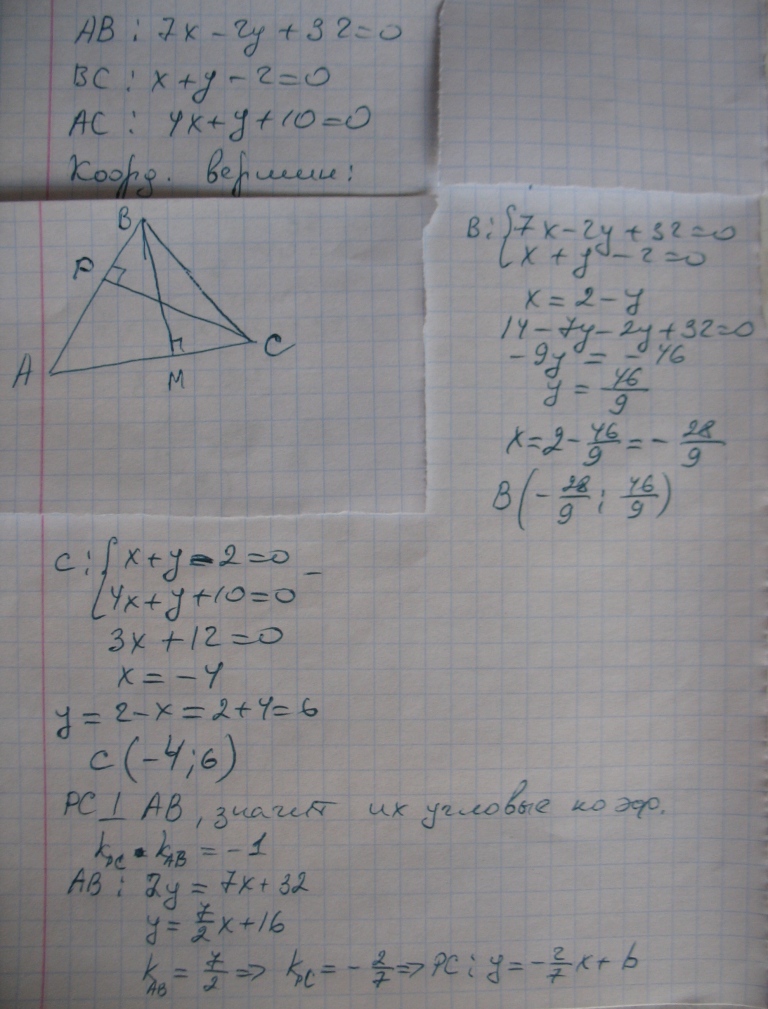 AB: 7x - 2y + 32 = 0
BC: x + y - 2 = 0
AC: 4x + y + 10 = 0
Коорд. вершин:
B
P
A
M
C
B: { 7x - 2y + 32 = 0
x + y - 2 = 0
x = 2 - y
14 - 7y - 2y + 32 = 0
-9y = -46
y = 46/9
x = 2 - 46/9 = - 28/9
B(- 28/9 ; 46/9)
C: { x + y - 2 = 0 -
4x + y + 10 = 0
3x + 12 = 0
x = -4
y = 2 - x = 2 + 4 = 6
C(-4; 6)
PC ⊥ AB, значит их угловые коэф.
k_PC · k_AB = -1
AB: 2y = 7x + 32
y = 7/2 x + 16
k_AB = 7/2 => k_PC = - 2/7 => PC: y = - 2/7 x + b